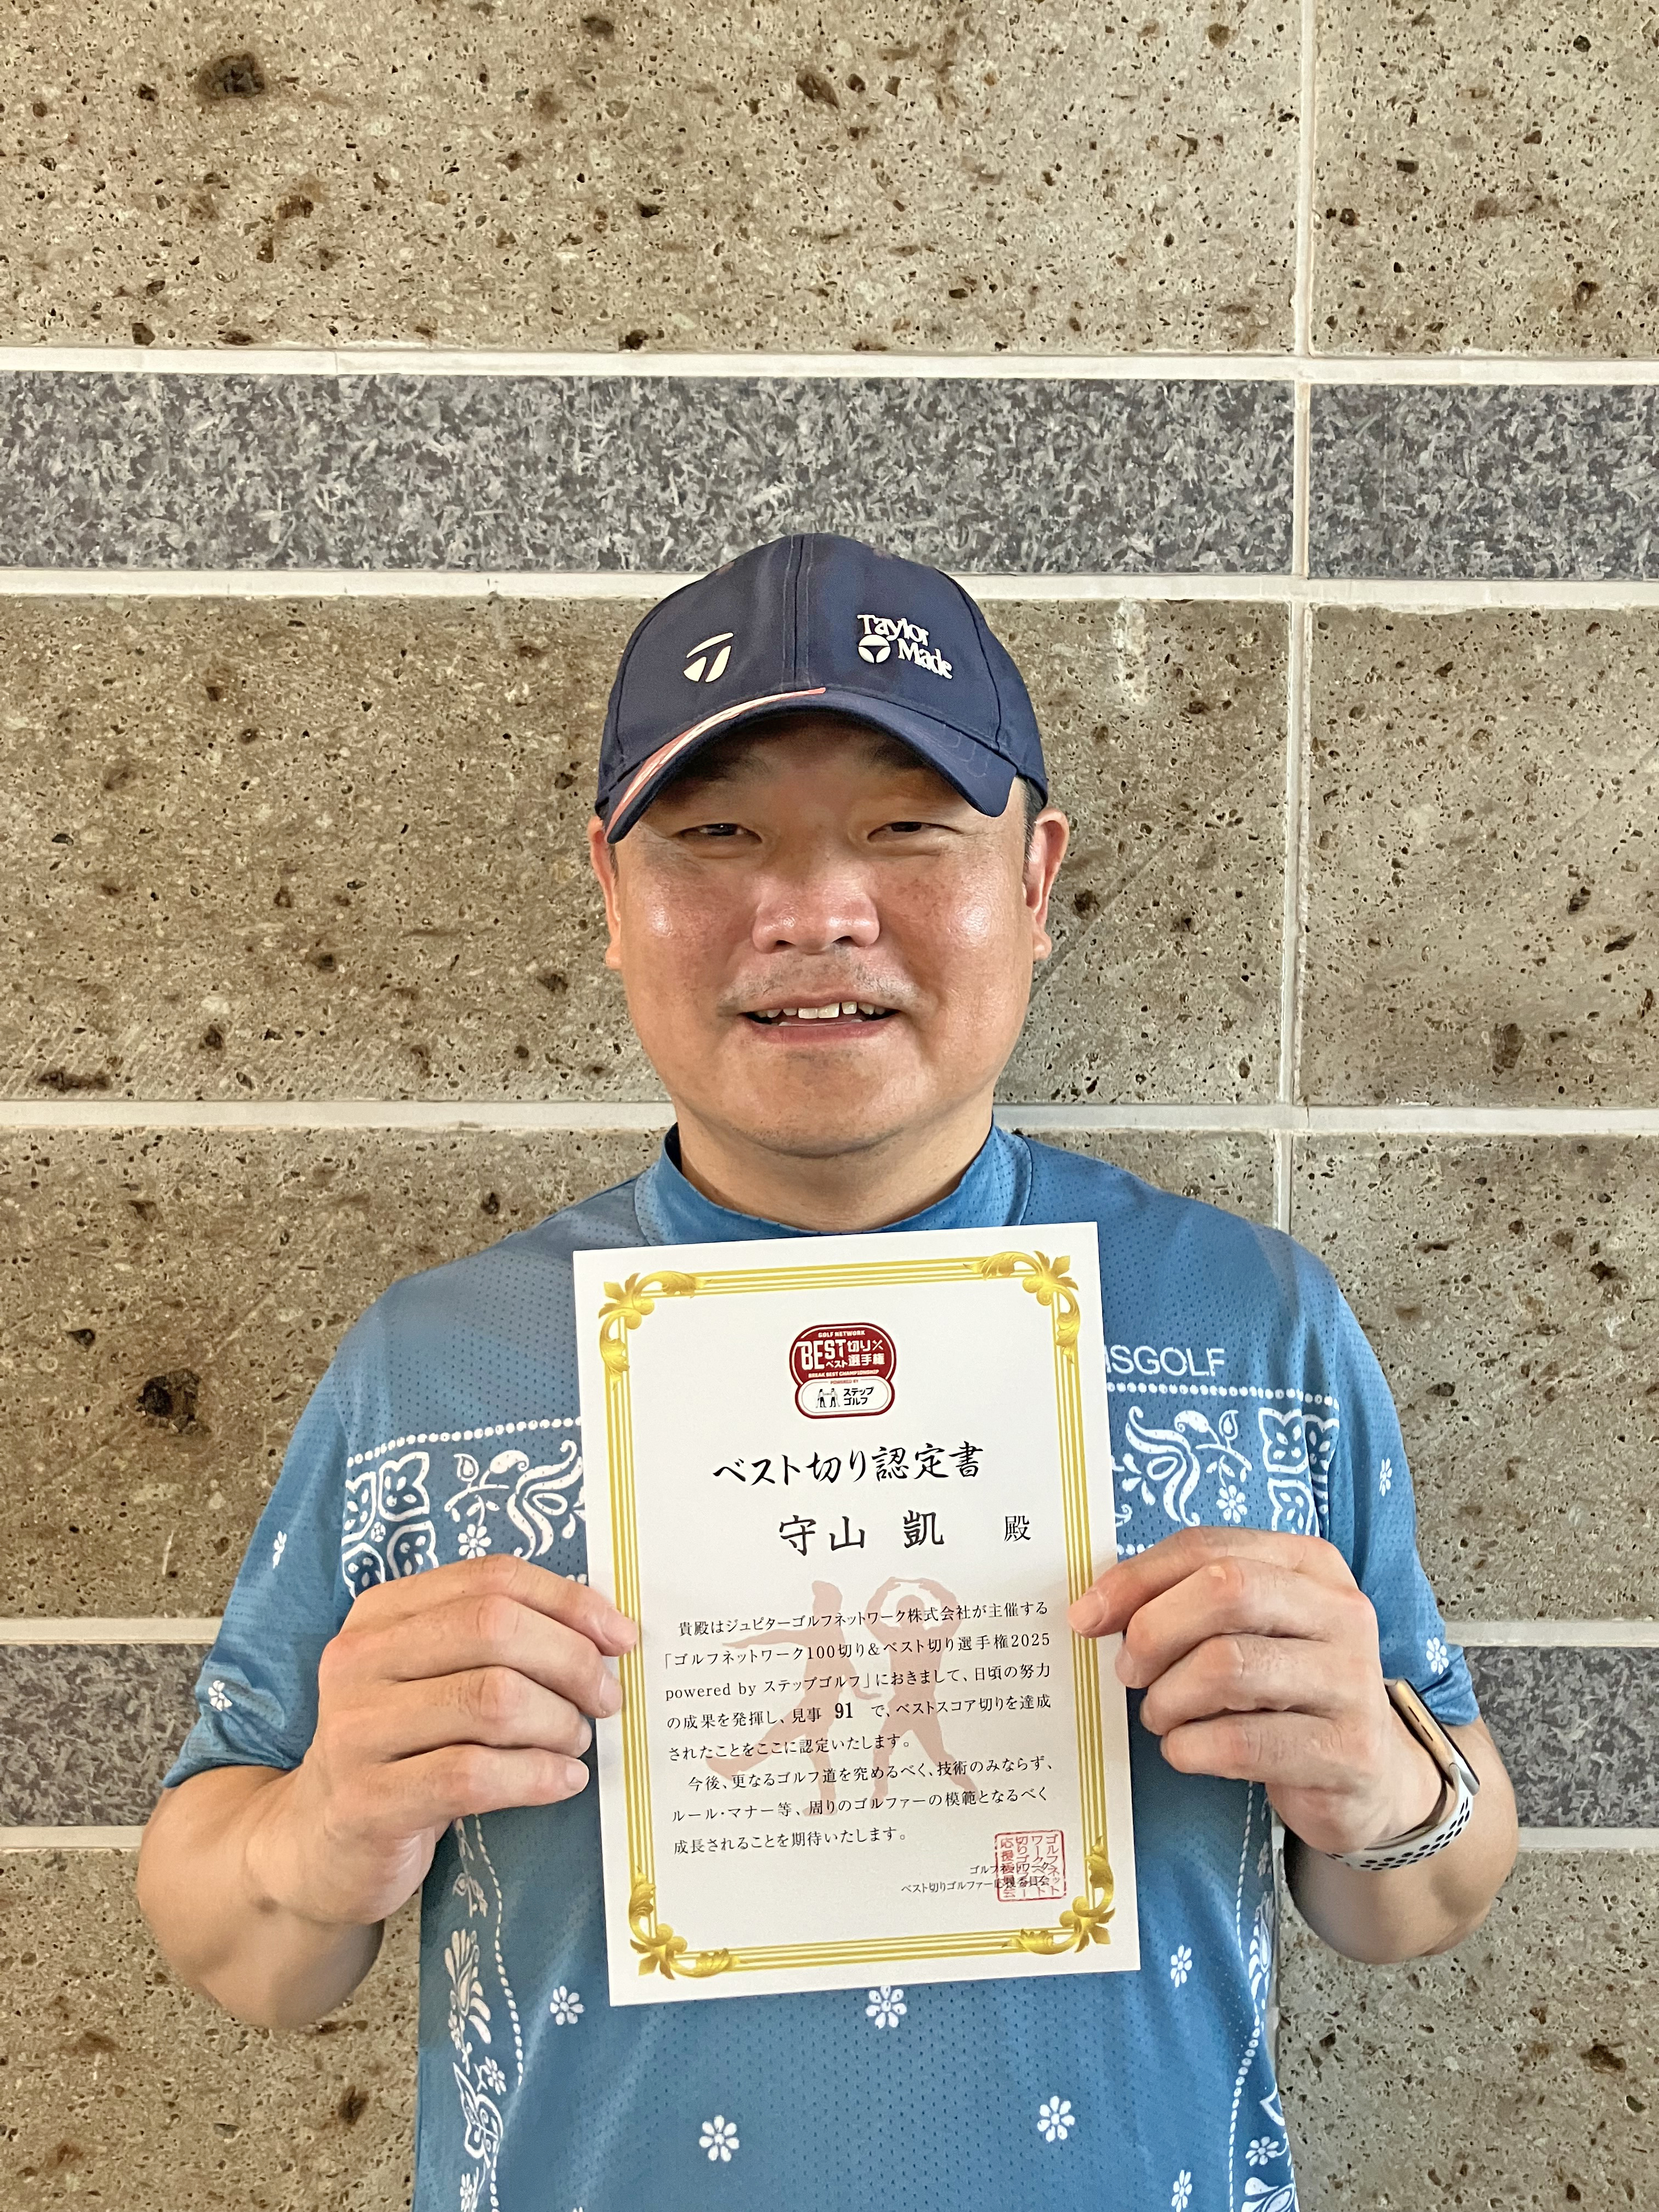 Taylor
Made
SGOLF
GOLF NETWORK
BEST切り
ベスト選手権
BREAK BEST CHAMPIONSHIP
POWERED BY
ステップ
ゴルフ
ベスト切り認定書
守山 凱 殿
貴殿はジュピターゴルフネットワーク株式会社が主催する
「ゴルフネットワーク100切り&ベスト切り選手権2025
powered by ステップゴルフ」におきまして、日頃の努力
の成果を発揮し、見事 91 で、ベストスコア切りを達成
されたことをここに認定いたします。
今後、更なるゴルフ道を究めるべく、技術のみならず、
ルール・マナー等、周りのゴルファーの模範となるべく
成長されることを期待いたします。
ゴルフネットワーク
ベスト切りゴルファー応援委員会